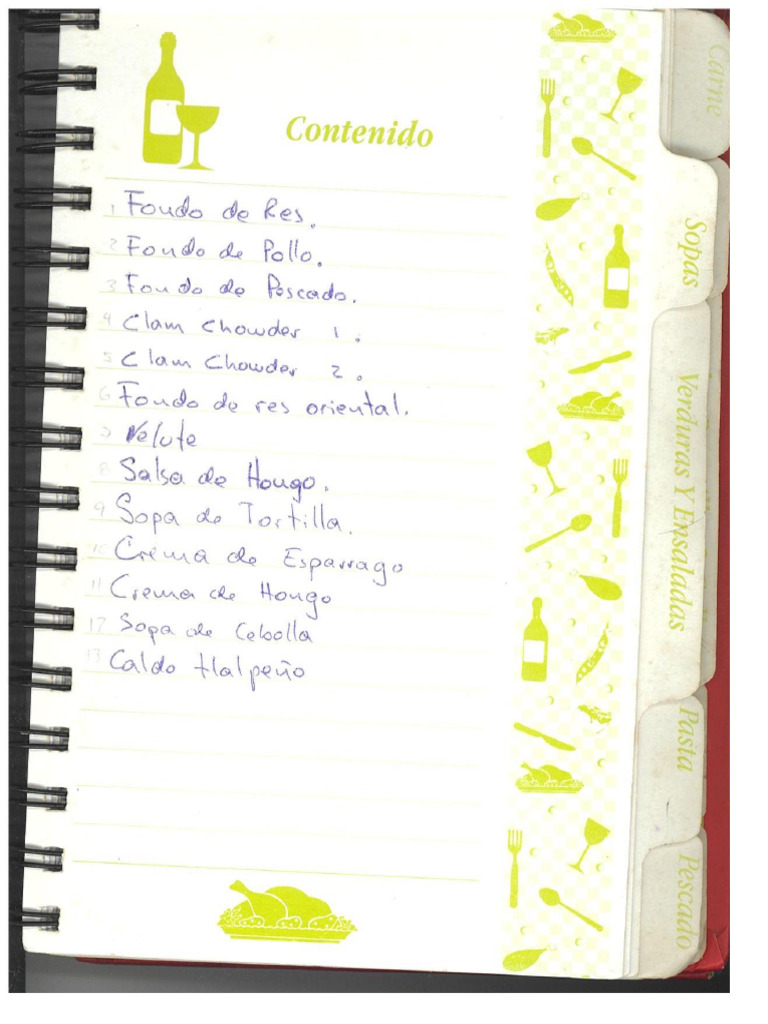 Contenido
1 Fondo de Res.
2 Fondo de Pollo.
3 Fondo de Pescado.
4 Clam Chowder 1.
5 Clam Chowder 2.
6 Fondo de res oriental.
7 Velute
8 Salsa de Hongo.
9 Sopa de Tortilla.
10 Crema de Esparrago
11 Crema de Hongo
12 Sopa de Cebolla
13 Caldo tlalpeño
Carne
Sopas
Verduras Y Ensaladas
Pasta
Pescado